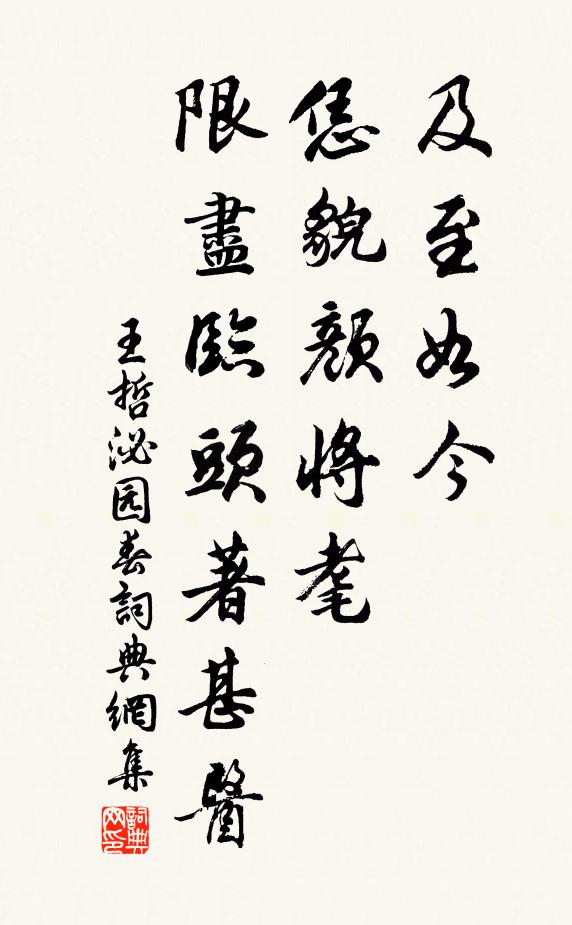 及至如今
恁貌顏將耄
限盡臨頭著甚醫
王哲泌园春詞典網集
詞典网印